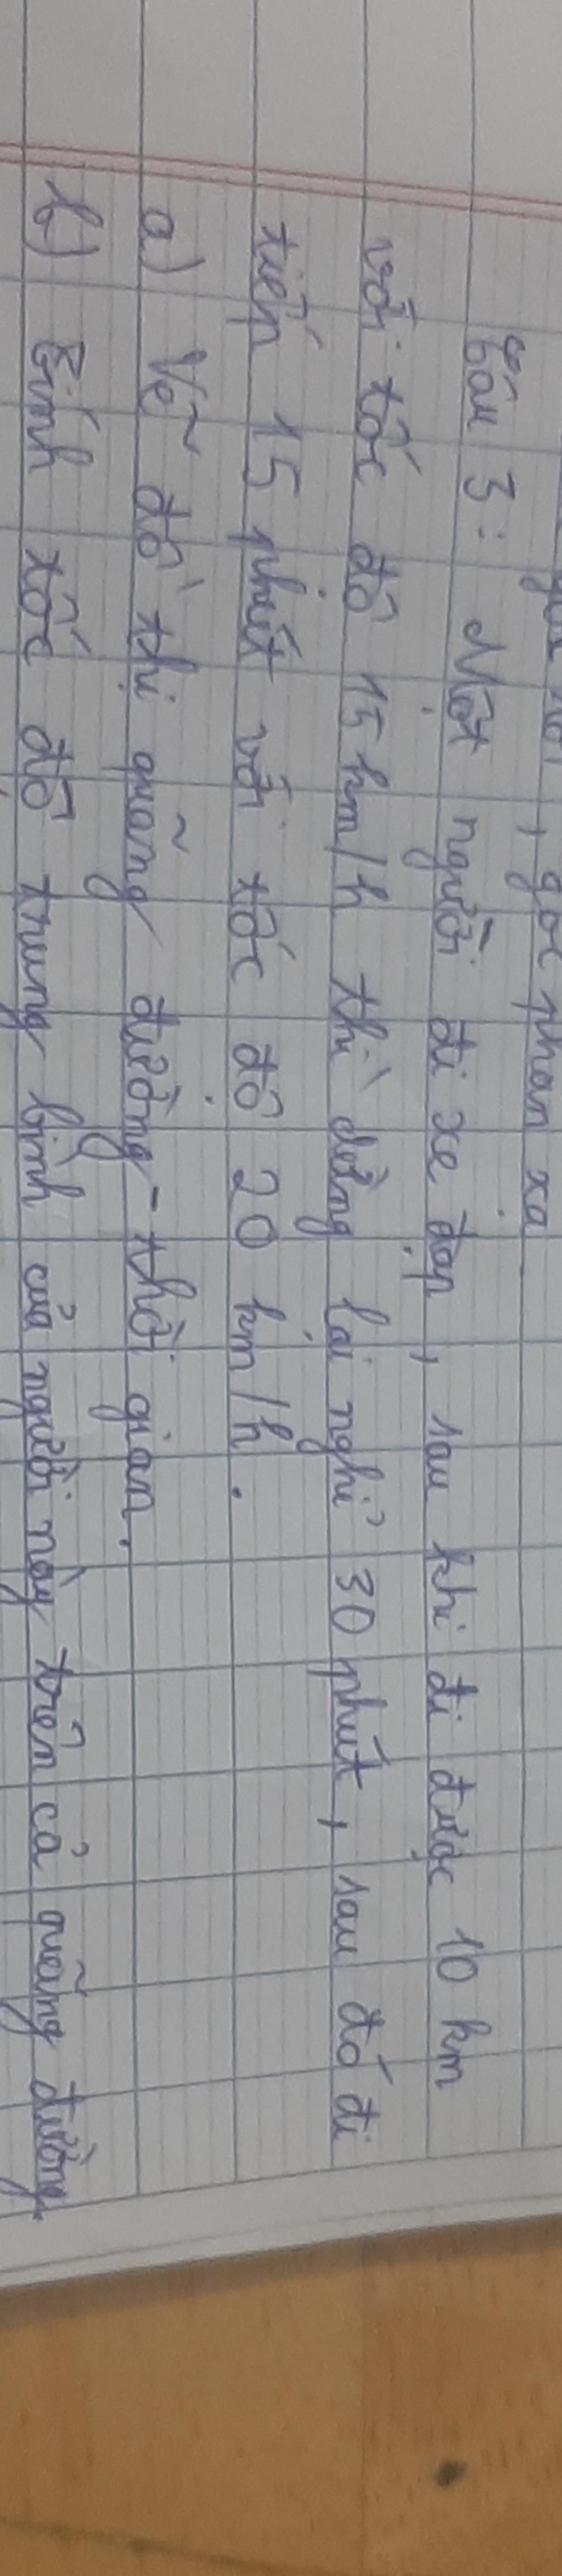 , góc phản xạ
Câu 3: Một người đi xe đạp, sau khi đi được 10 km
với tốc độ 15 km/h thì dừng lại nghỉ 30 phút, sau đó đi
tiếp 15 phút với tốc độ 20 km/h.
a) Vẽ đồ thị quãng đường - thời gian.
b) Tính tốc độ trung bình của người này trên cả quãng đường